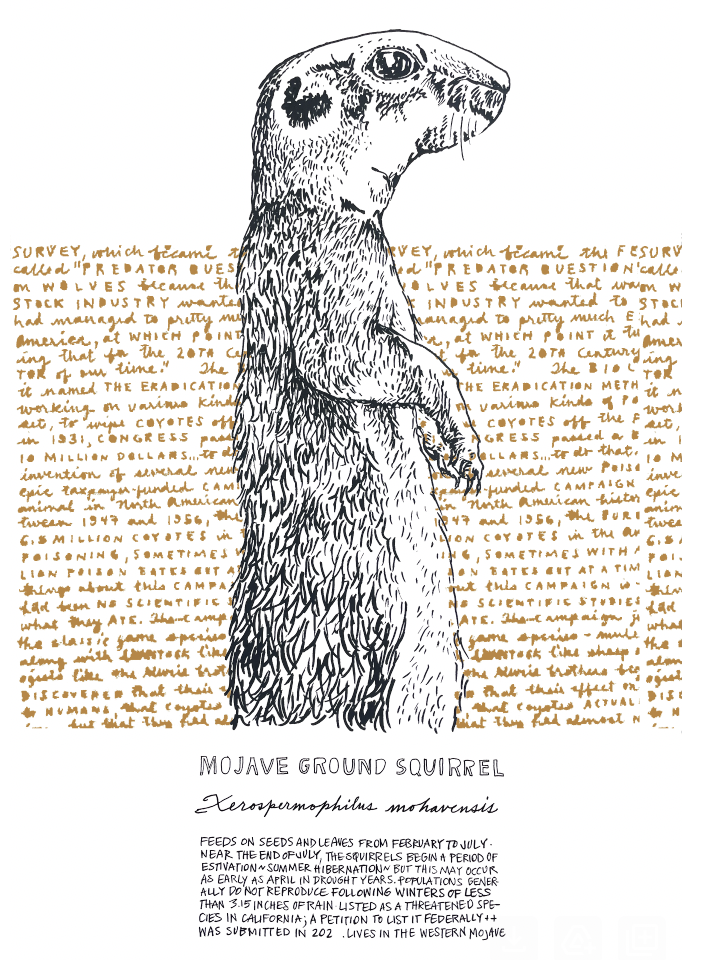 SURVEY, which became t RVEY, which became the FESURV
called "PREDATOR QUES d "PREDATOR QUESTION"calle
on WOLVES because th OLVES because that was on W
STOCK INDUSTRY wante INDUSTRY wanted to STOC
had managed to pretty mu managed to pretty much E had m
America, at WHICH POINT at WHICH POINT it tu
ing that for the 20TH Ce for the 20TH Century ing
TOR of our time." The time." The BIOL TOR
it named THE ERADICATIO THE ERADICATION METH it n
working on various kinds n various kinds of PO work
set, to wipe COYOTES off COYOTES off the F set,
in 1931, CONGRESS pas GRESS passed a B in 1
10 MILLION DOLLARS...to d ARS...to do that. 10 M
invention of several new several new POISO inve
epic taxpayer-funded CAM funded CAMPAIGN epic
animal in North American North American histor anim
tween 1947 and 1956, the and 1956, the PURE twee
6.5 MILLION COYOTES in LION COYOTES in the Am 6.5
POISONING, SOMETIMES W , SOMETIMES WITH A POI
LION POISON BAITS OUT AT A TIM LION
things about this CAMPA ut this CAMPAIGN is thin
had been NO SCIENTIFIC S SCIENTIFIC STUDIES had
what they ATE. The camp ATE. The campaign j what
the classic game species game species - mule the
along with like like sheep along
DISCOVERED that their that their effect on DISC
to HUMANS, that coyotes that coyotes ACTUAL
but that they had al that they had almost N
MOJAVE GROUND SQUIRREL
Xerospermophilus mohavensis
FEEDS ON SEEDS AND LEAVES FROM FEBRUARY TO JULY.
NEAR THE END OF JULY, THE SQUIRRELS BEGIN A PERIOD OF
ESTIVATION ~ SUMMER HIBERNATION ~ BUT THIS MAY OCCUR
AS EARLY AS APRIL IN DROUGHT YEARS. POPULATIONS GENER-
ALLY DO NOT REPRODUCE FOLLOWING WINTERS OF LESS
THAN 3.15 INCHES OF RAIN. LISTED AS A THREATENED SPE-
CIES IN CALIFORNIA; A PETITION TO LIST IT FEDERALLY ++
WAS SUBMITTED IN 202 . LIVES IN THE WESTERN MOJAVE